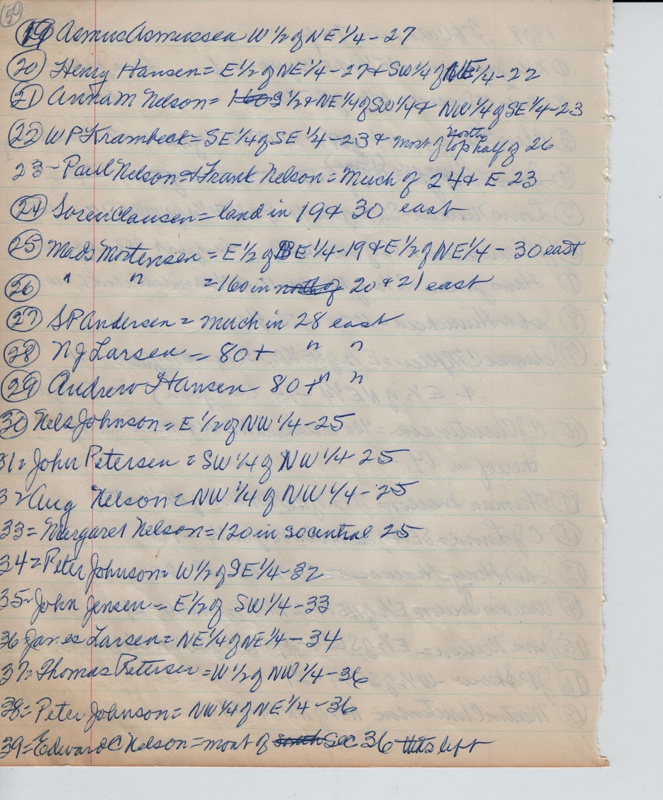 50
19 Asmus Asmussen W 1/2 of NE 1/4 - 27
20 Henry Hansen = E 1/2 of NE 1/4 - 27 & SW 1/4 of NE 1/4 - 22
21 Anna M Nelson = S 1/2 & NE 1/4 of SW 1/4 & NW 1/4 of SE 1/4 - 23
22 W P Krambeck = SE 1/4 of SE 1/4 - 23 & most of top half of 26
23 - Paul Nelson & Frank Nelson = much of 24 & E 23
24 Soren Clausen = land in 19 & 30 east
25 Mads Mortensen = E 1/2 of SE 1/4 - 19 & E 1/2 of NE 1/4 - 30 east
26 " " = 160 in north of 20 & 21 east
27 S P Andersen = much in 28 east
28 N J Larsen = 80 + " "
29 Andrew Hansen 80 + " "
30 Nels Johnson = E 1/2 of NW 1/4 - 25
31 = John Petersen = SW 1/4 of NW 1/4 25
32 Aug Nelson = NW 1/4 of NW 1/4 - 25
33 = Margaret Nelson = 120 in so central 25
34 = Peter Johnson = W 1/2 of SE 1/4 - 32
35 = John Jensen = E 1/2 of SW 1/4 - 33
36 James Larsen = NE 1/4 of NE 1/4 - 34
37 = Thomas Petersen = W 1/2 of NW 1/4 - 36
38 = Peter Johnson = NW 1/4 of NE 1/4 - 36
39 = Edward C Nelson = most of south Sec 36 left